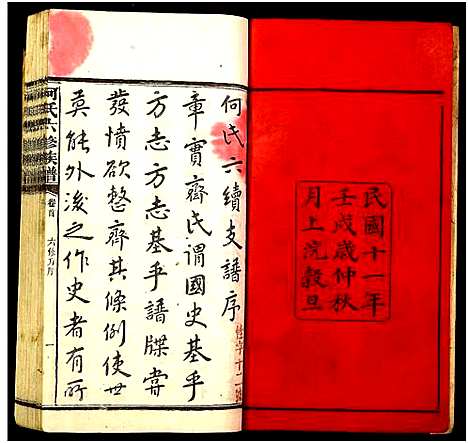 民國十一年
壬戌歲仲秋
月上浣穀旦
何氏六續支譜序
章實齊氏謂國史基乎
方志方志基乎譜牒嘗
發憤欲整齊其條例使世
莫能外後之作史者有所
何氏六修族譜
卷首
一